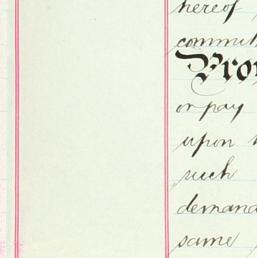 hereof
commit
Pro
or pay
upon
such
demand
same